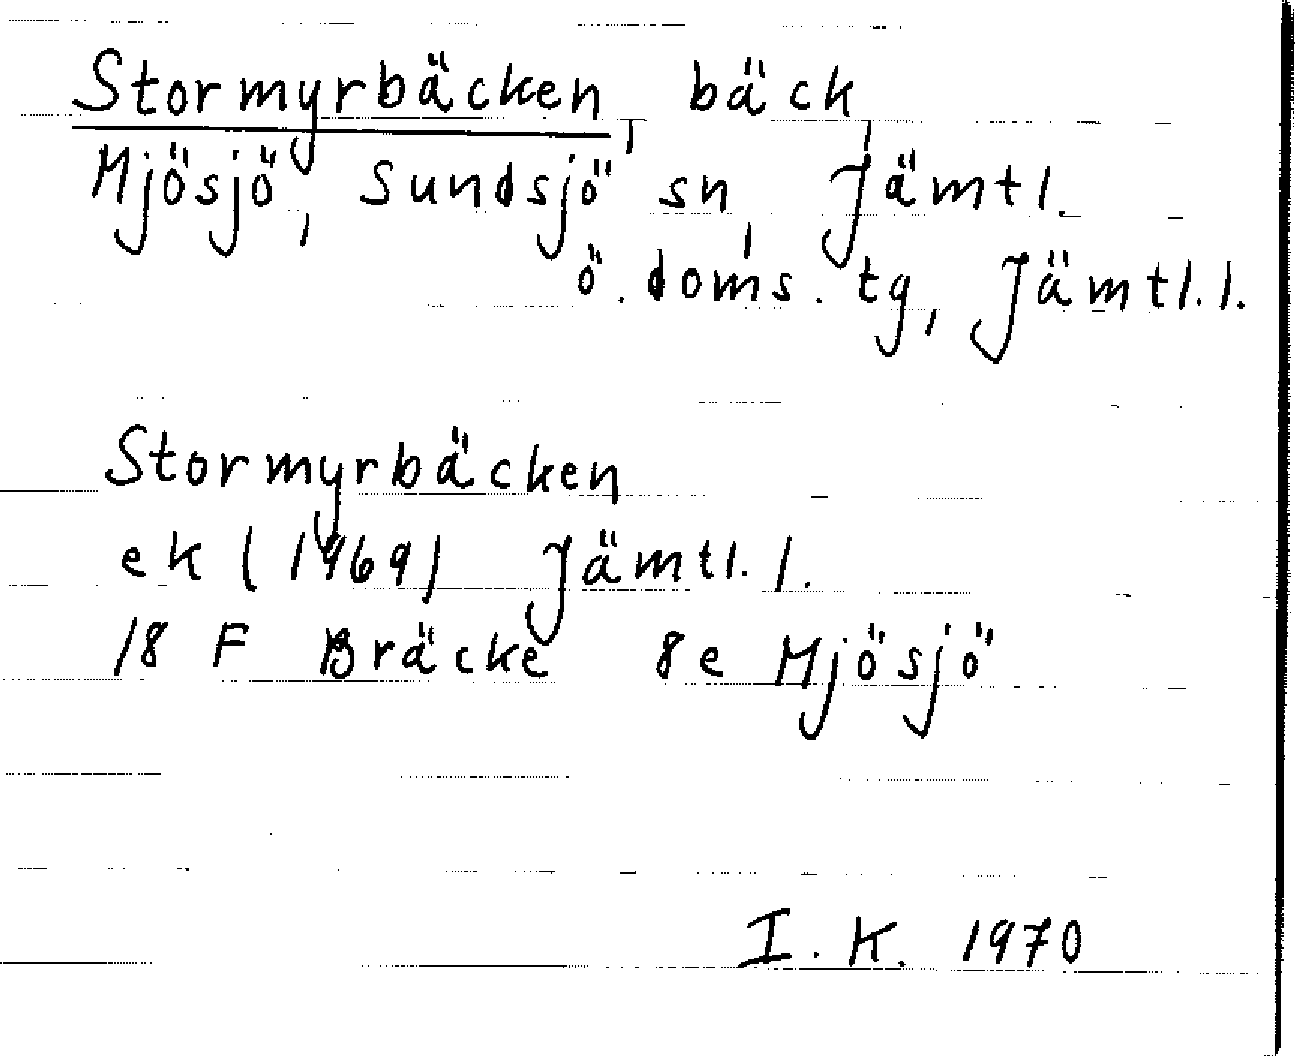 Stormyrbäcken, bäck,
Mjösjö, Sundsjö sn, Jämtl.
ö. doms. tg, Jämtl. l.
Stormyrbäcken
ek (1969) Jämtl. l.
18 F Bräcke 8e Mjösjö
I. K. 1970